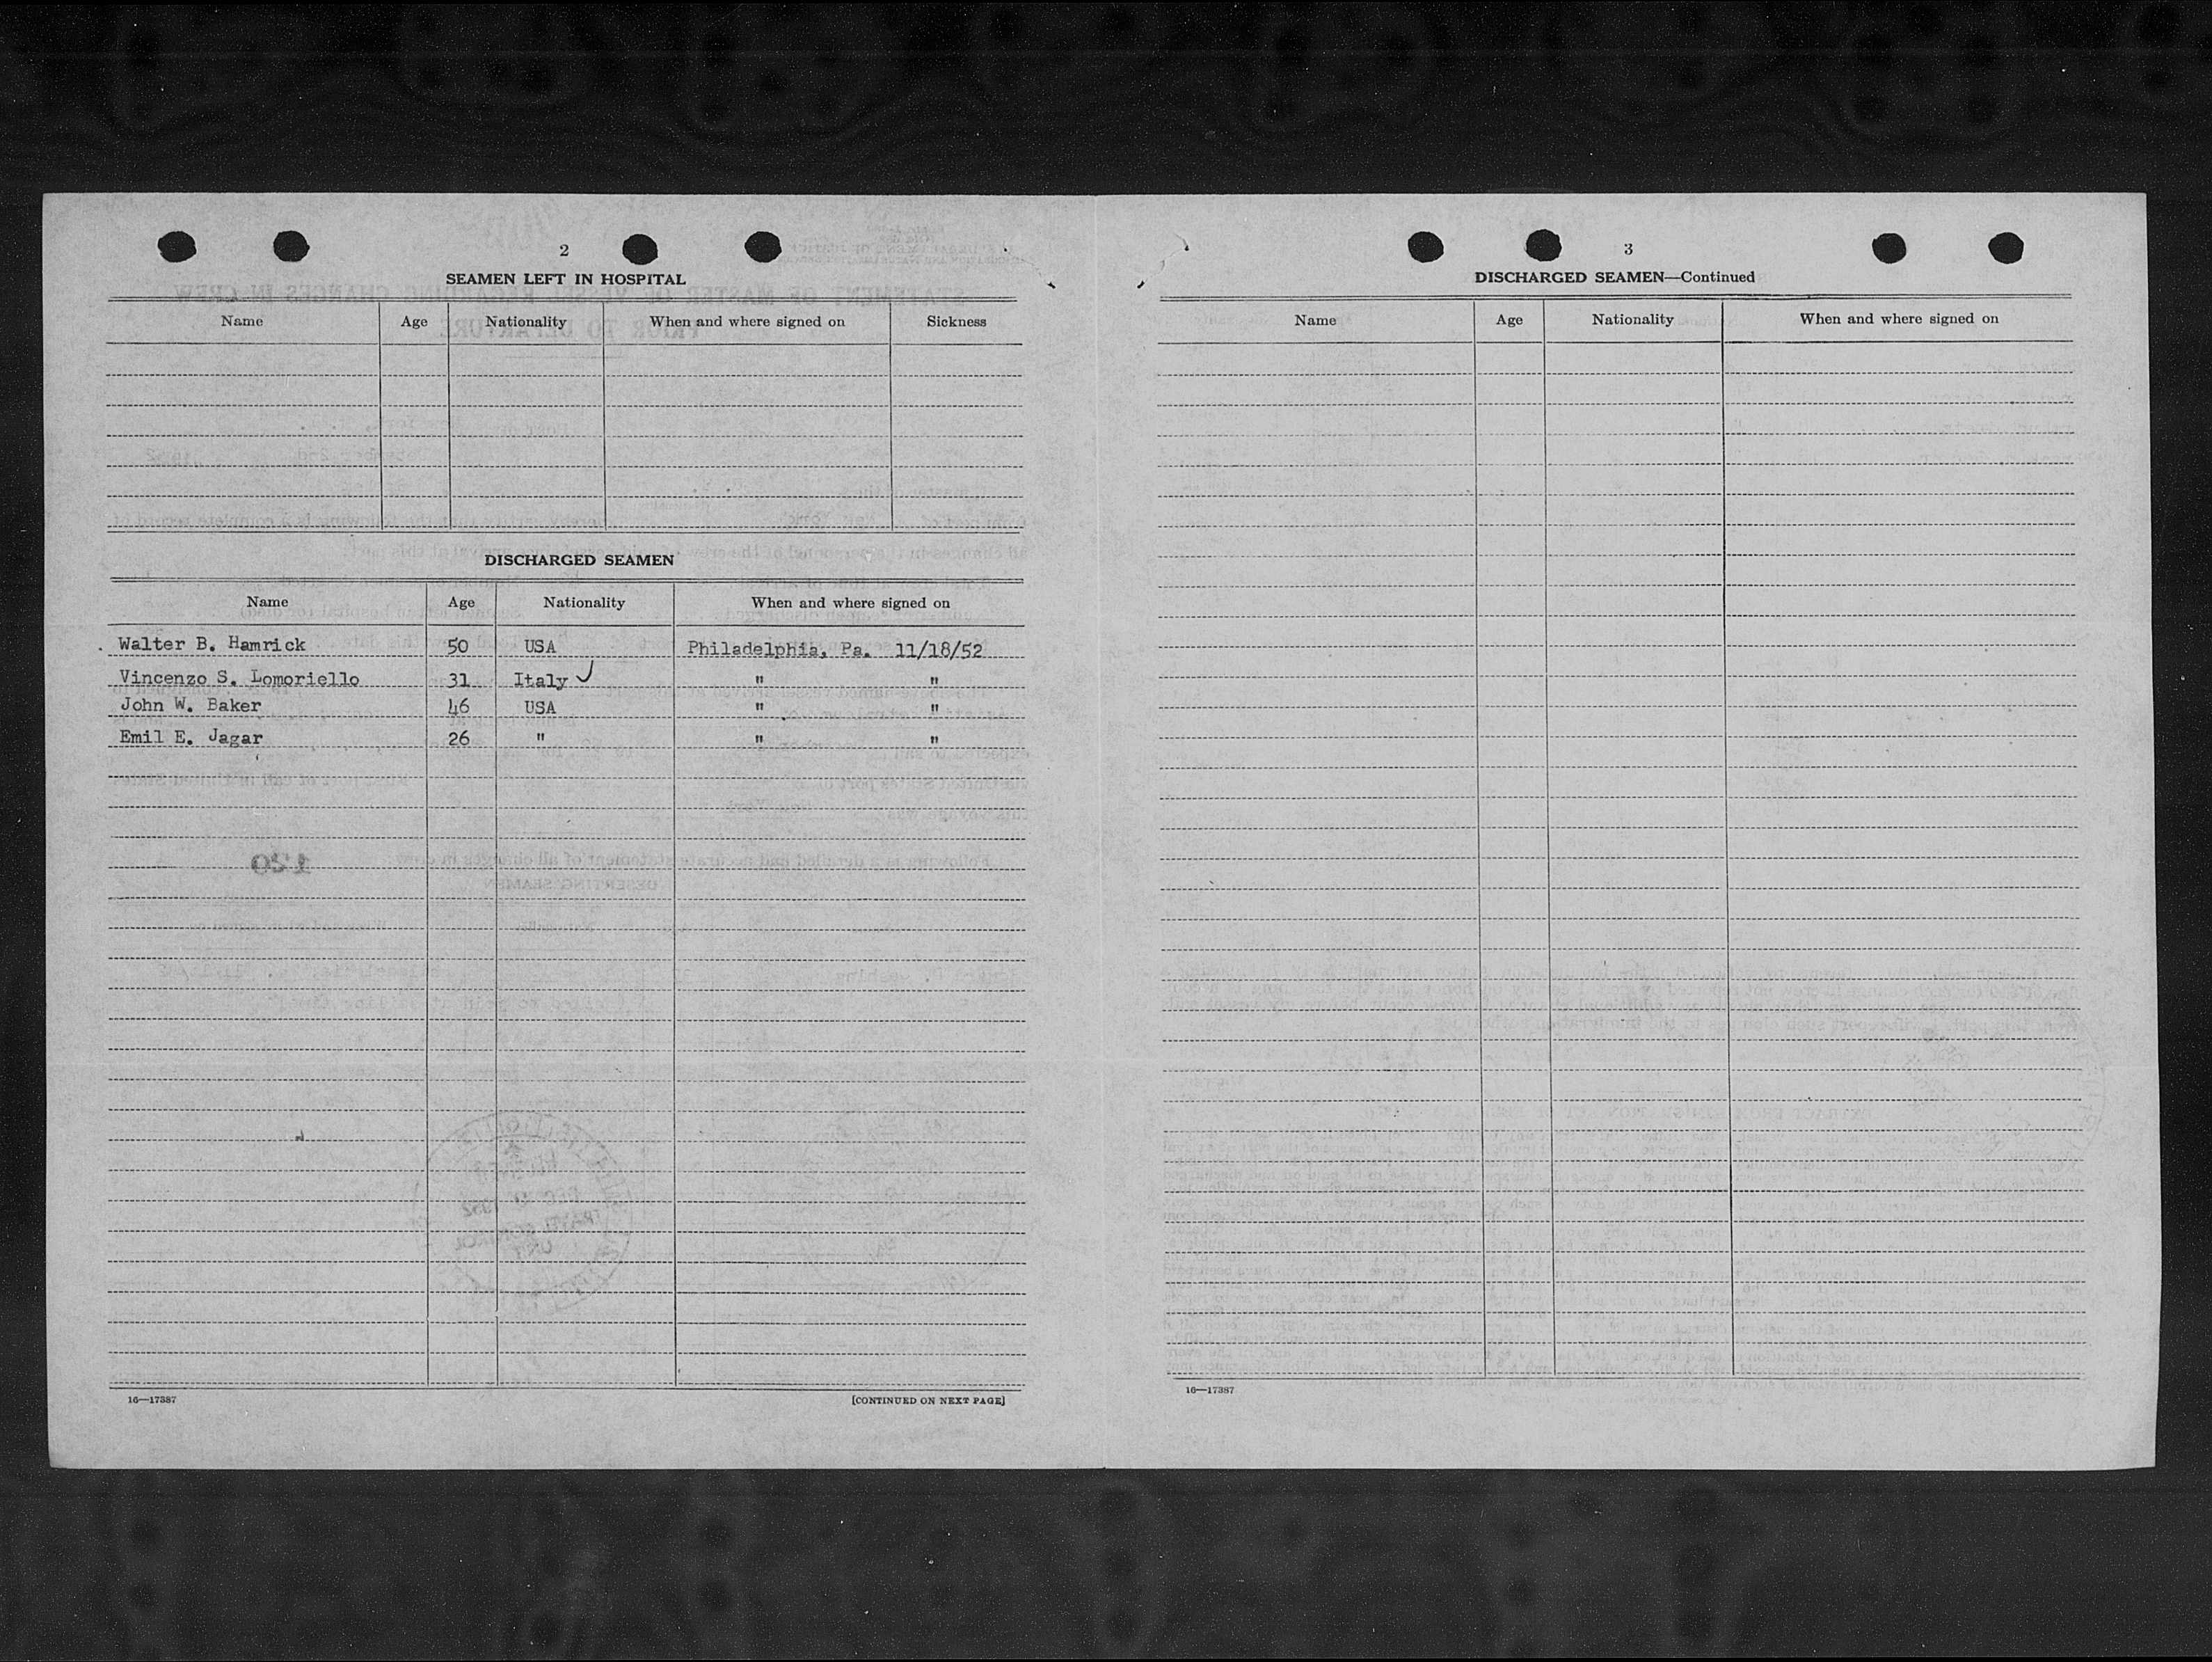 2
SEAMEN LEFT IN HOSPITAL
Name Age Nationality When and where signed on Sickness
DISCHARGED SEAMEN
Name Age Nationality When and where signed on
Walter B. Hamrick 50 USA Philadelphia, Pa. 11/18/52
Vincenzo S. Lomoriello 31 Italy " "
John W. Baker 46 USA " "
Emil E. Jagar 26 " " "
16—17387 [CONTINUED ON NEXT PAGE]
3
DISCHARGED SEAMEN—Continued
Name Age Nationality When and where signed on
16—17387